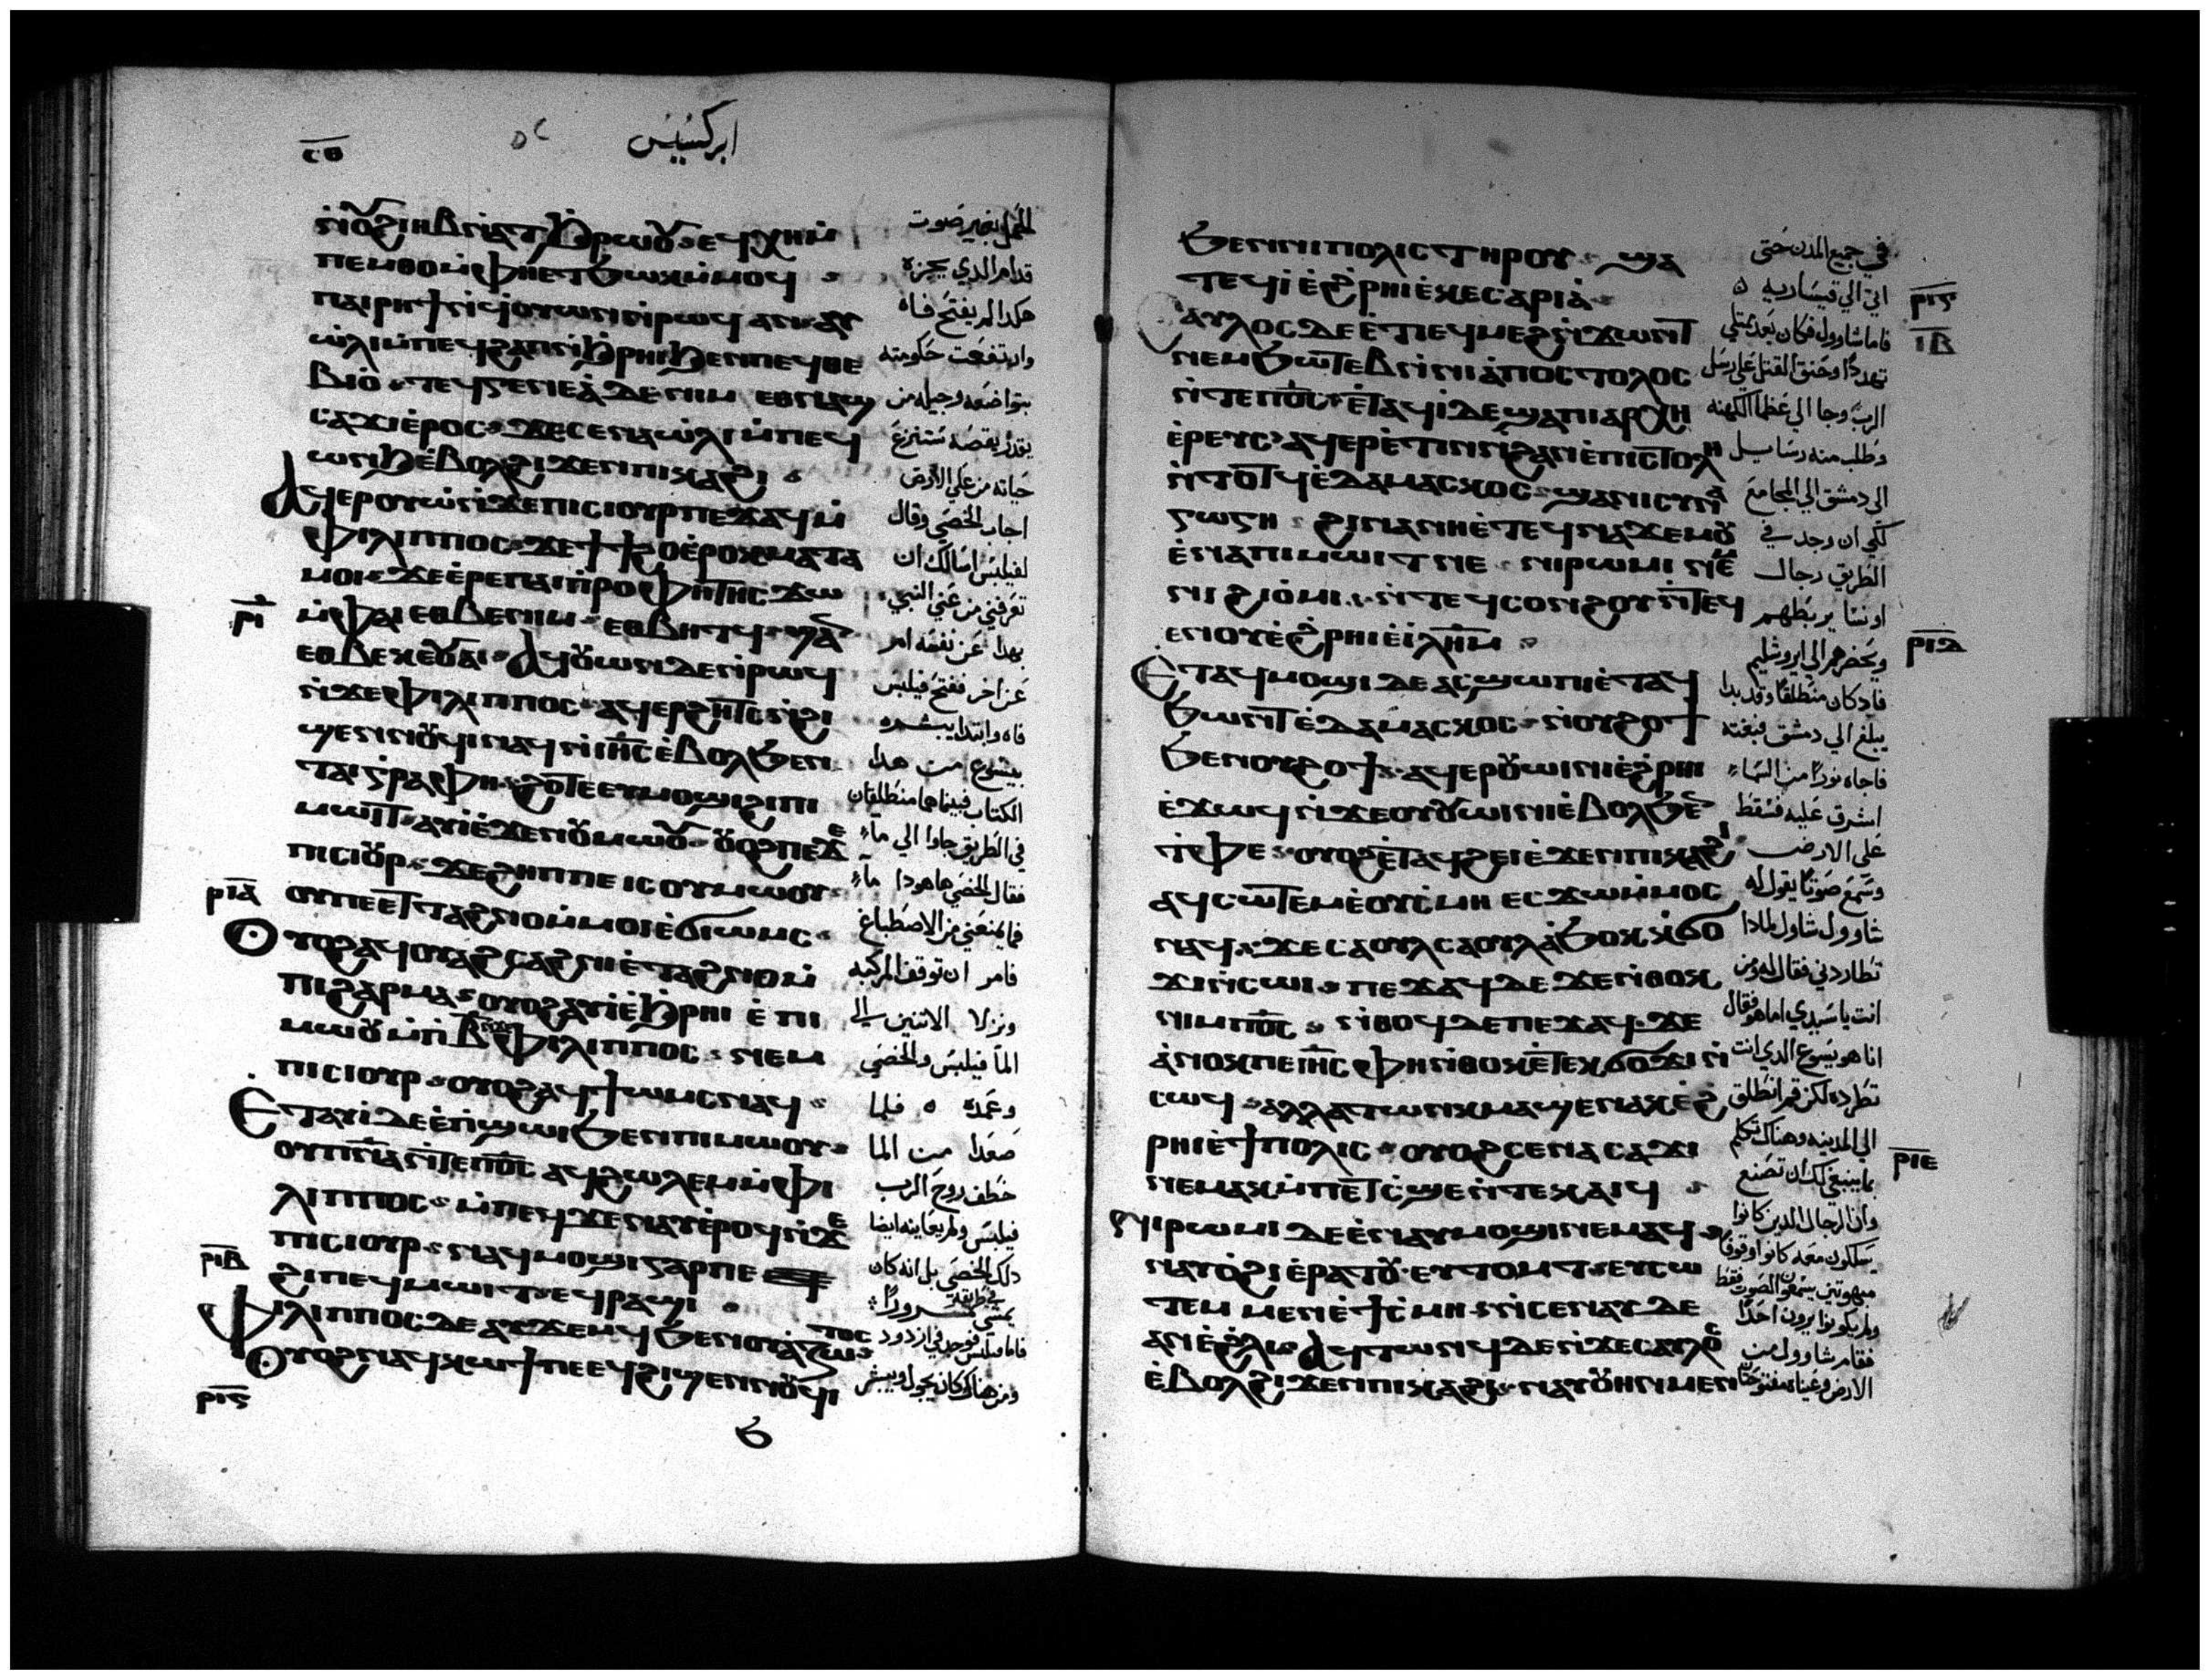 ⲥⲑ
ابركسيس
ⲛ̇ⲟⲩϩⲓⲏⲃ ⲛ̇ⲁⲧϧⲣⲱⲟⲩ ⲉϥⲭⲏ ⲙ̇
ⲡⲉⲙⲑⲟ ⲙ̇ⲫⲏⲉⲧϧⲱⲕ ⲙ̇ⲙⲟϥ
ⲡⲁⲓⲣⲏϯ ⲛ̇ϥ̇ⲟⲩⲱⲛ ⲛ̇ⲣⲱϥ ⲁⲛ ⲁⲩ
ⲱ̇ⲗⲓ ⲙ̇ⲡⲉϥϩⲁⲡ ⲛ̇ϧⲣⲏⲓ ϧⲉⲛ ⲡⲉϥⲑⲉ
ⲃⲓⲟ̇ ⲧⲉϥⲅⲉⲛⲉⲁ̇ ⲇⲉ ⲛⲓⲙ ⲉⲑⲛⲁϣ
ⲥⲁϫⲓ ⲉ̇ⲣⲟⲥ ϫⲉ ⲥⲉⲛⲁⲱ̇ⲗⲓ ⲙ̇ⲡⲉϥ
ⲱⲛϧ ⲉ̇ⲃⲟⲗϩⲓϫⲉⲛ ⲡⲓⲕⲁϩⲓ
ⲁϥⲉⲣⲟⲩⲱ̇ ⲛ̇ϫⲉ ⲡⲓⲥⲓⲟⲩⲣ ⲡⲉϫⲁϥ ⲙ̇
ⲫⲓⲗⲓⲡⲡⲟⲥ ϫⲉ ϯϯϩⲟ ⲉ̇ⲣⲟⲕ ⲙⲁⲧⲁ
ⲙⲟⲓ ϫⲉ ⲉ̇ⲣⲉ ⲡⲁⲓⲡⲣⲟⲫⲏⲧⲏⲥ ϫⲱ
ⲙ̇ⲫⲁⲓ ⲉⲑⲃⲉ ⲛⲓⲙ ⲉⲑⲃⲏⲧϥ ϣⲁⲛ
ⲉⲑⲃⲉ ⲕⲉⲟⲩⲁⲓ ⲁϥⲟⲩⲱⲛ ⲇⲉ ⲛ̇ⲣⲱϥ
ⲛ̇ϫⲉ ⲫⲓⲗⲓⲡⲡⲟⲥ ⲁϥⲉⲣϩⲏⲧⲥ ⲛ̇ϩⲓ
ϣⲉⲛⲛⲟⲩϥⲓ ⲛⲁϥ ⲛ̇ⲓⲏⲥ ⲉ̇ⲃⲟⲗϧⲉⲛ
ⲧⲁⲓⲅⲣⲁⲫⲏ ϩⲟⲧⲉ ⲉⲩⲙⲟϣⲓ ϩⲓ ⲡⲓ
ⲙⲱⲓⲧ ⲁⲩⲓ̇ ⲉ̇ϫⲉⲛ ⲟⲩⲙⲱⲟⲩ ⲟⲩⲟϩ ⲡⲉϫⲉ
ⲡⲓⲥⲓⲟⲩⲣ ϫⲉ ϩⲏⲡⲡⲉ ⲓⲥ ⲟⲩⲙⲱⲟⲩ
ⲟⲩ ⲡⲉⲧⲧⲁϩⲛⲟ ⲙ̇ⲙⲟⲓ ⲉ̇ϭⲓⲱⲙⲥ
ⲟⲩⲟϩ ⲁϥⲟⲩⲁϩⲥⲁϩⲛⲓ ⲉ̇ⲧⲁϩⲛⲟ ⲙ̇
ⲡⲓϩⲁⲣⲙⲁ ⲟⲩⲟϩ ⲁⲩⲓ̇ ⲉ̇ϧⲣⲏⲓ ⲉ̇ ⲡⲓ
ⲙⲱⲟⲩ ⲙ̇ⲡⲃ̅ ⲛ̇ϫⲉ ⲫⲓⲗⲓⲡⲡⲟⲥ ⲛⲉⲙ
ⲡⲓⲥⲓⲟⲩⲣ ⲟⲩⲟϩ ⲁϥϯⲱⲙⲥ ⲛⲁϥ
ⲉⲧⲁⲩⲓ̇ ⲇⲉ ⲉ̇ⲡϣⲱⲓ ϧⲉⲛ ⲡⲓⲙⲱⲟⲩ
ⲟⲩⲡⲛⲁ ⲛ̇ⲧⲉ ⲡⲟⲥ ⲁϥϩⲱⲗⲉⲙ ⲙ̇ⲫⲓ
ⲗⲓⲡⲡⲟⲥ ⲙ̇ⲡⲉϥϫⲉ ⲛⲁⲩ ⲉ̇ⲣⲟϥ ⲛ̇ϫⲉ
ⲡⲓⲥⲓⲟⲩⲣ ⲛⲁϥⲙⲟϣⲓ ⲅⲁⲣ ⲡⲉ
ϩⲓ ⲡⲉϥⲙⲱⲓⲧ ⲉϥⲣⲁϣⲓ
ⲫⲓⲗⲓⲡⲡⲟⲥ ⲇⲉ ⲁⲩϫⲉⲙϥ ϧⲉⲛ ⲁⲍⲱⲧⲟⲥ
ⲟⲩⲟϩ ⲛⲁϥⲕⲱϯ ⲡⲉ ⲉϥϩⲓϣⲉⲛⲛⲟⲩϥⲓ
ⲣⲓ
ⲣⲓⲁ
ⲣⲓⲃ
ⲣⲓⲅ
الحمل بغير صوت
قدام الذي يجزه
هكدا لم يفتح فاه
وارتفعت حكومته
بتواضعه وجيله من
يقدر يقصه ستنزع
حياته من علي الارض
اجاب الخصي وقال
لفيلبس اسالك ان
تعرفني من عني النبي
بهدا عن نفسه ام
عن اخر ففتح فيلبس
فاه وابتدا يبشره
بيسوع من هدا
الكتاب فبينما هما منطلقان
في الطريق جاوا الي ماء
فقال الخصي ها هودا ماء
فما يمنعني من الاصطباغ
فامر ان توقف المركبه
ونزلا الاثنين الي
الما فيلبس والخصي
وعمده ه فلما
صعدا من الما
خطف روح الرب
فيلبس ولم يعاينه ايضا
دلك الخصي بل انه كان
يمشي في طريقه مسرورا
فاما فيلبس فوجد في ازدود
ومن هناك كان يجول ويبشر
ϧⲉⲛ ⲛⲓⲡⲟⲗⲓⲥ ⲧⲏⲣⲟⲩ ϣⲁ
ⲧⲉϥⲓ̇ ⲉ̇ϩⲣⲏⲓ ⲉ̇ⲕⲉⲥⲁⲣⲓⲁ̇
ⲁⲩⲗⲟⲥ ⲇⲉ ⲉ̇ⲧⲓ ⲉϥⲙⲉϩ ⲛ̇ϫⲱⲛⲧ
ⲛⲉⲙ ϧⲱⲧⲉⲃ ⲛ̇ⲛⲓⲁ̇ⲡⲟⲥⲧⲟⲗⲟⲥ
ⲛ̇ⲧⲉ ⲡⲟⲥ ⲉ̇ⲧⲁϥⲓ̇ ⲇⲉ ϣⲁ ⲡⲓⲁⲣⲭⲏ
ⲉ̇ⲣⲉⲩⲥ ⲁϥⲉⲣⲉ̇ⲧⲓⲛ ⲛ̇ϩⲁⲛⲉ̇ⲡⲓⲥⲧⲟⲗⲏ
ⲛ̇ⲧⲟⲧϥ ⲉ̇ⲇⲁⲙⲁⲥⲕⲟⲥ ϣⲁ ⲛⲓⲥⲩⲛⲁ
ⲅⲱⲅⲏ ϩⲓⲛⲁ ⲛⲏ ⲉ̇ⲧⲉϥⲛⲁϫⲉⲙⲟⲩ
ⲉ̇ⲛⲁ ⲡⲓⲙⲱⲓⲧ ⲛⲉ ⲛⲓⲣⲱⲙⲓ ⲛⲉⲙ
ⲛⲓϩⲓⲟ̇ⲙⲓ ⲛ̇ⲧⲉϥⲥⲟⲛϩⲟⲩ ⲛ̇ⲧⲉϥ
ⲉⲛⲟⲩ ⲉ̇ϩⲣⲏⲓ ⲉ̇ⲓⲗⲏⲙ
ⲉⲧⲁϥⲙⲟϣⲓ ⲇⲉ ⲁⲥϣⲱⲡⲓ ⲉ̇ⲧⲁϥ
ϧⲱⲛⲧ ⲉ̇ⲇⲁⲙⲁⲥⲕⲟⲥ ⲛ̇ⲟⲩϩⲟϯ
ϧⲉⲛ ⲟⲩϩⲟϯ ⲁϥⲉⲣⲟⲩⲱⲓⲛⲓ ⲉ̇ϩⲣⲏⲓ
ⲉ̇ϫⲱϥ ⲛ̇ϫⲉ ⲟⲩⲟⲩⲱⲓⲛⲓ ⲉ̇ⲃⲟⲗϧⲉⲛ
ⲧ̇ⲫⲉ ⲟⲩⲟϩ ⲉ̇ⲧⲁϥϩⲉⲓ ⲉ̇ϫⲉⲛ ⲡⲓⲕⲁϩⲓ
ⲁϥⲥⲱⲧⲉⲙ ⲉ̇ⲟⲩⲥ̇ⲙⲏ ⲉⲥϫⲱ ⲙ̇ⲙⲟⲥ
ⲛⲁϥ ϫⲉ ⲥⲁⲟⲩⲗ ⲥⲁⲟⲩⲗ ⲁ̇ϧⲟⲕ ⲕ̇ϭⲟ
ϫⲓ ⲛ̇ⲥⲱⲓ ⲡⲉϫⲁϥ ⲇⲉ ϫⲉ ⲛ̇ⲑⲟⲕ
ⲛⲓⲙ ⲡⲟⲥ ⲛ̇ⲑⲟϥ ⲇⲉ ⲡⲉϫⲁϥ ϫⲉ
ⲁ̇ⲛⲟⲕ ⲡⲉ ⲓⲏⲥ ⲫⲏ ⲛ̇ⲑⲟⲕ ⲉ̇ⲧⲉⲕϭⲟϫⲓ ⲛ̇
ⲥⲱϥ ⲁⲗⲗⲁ ⲧⲱⲛⲕ ⲙⲁϣⲉⲛⲁⲕ ⲉ̇ϩ
ⲣⲏⲓ ⲉ̇ϯⲡⲟⲗⲓⲥ ⲟⲩⲟϩ ⲥⲉⲛⲁⲥⲁϫⲓ
ⲛⲉⲙⲁⲕ ⲙ̇ⲡⲉⲧⲥ̇ϣⲉ ⲛ̇ⲧⲉⲕⲁⲓϥ
ⲛⲓⲣⲱⲙⲓ ⲇⲉ ⲉ̇ⲛⲁⲩⲙⲟϣⲓ ⲛⲉⲙⲁϥ
ⲛⲁⲩⲟ̇ϩⲓ ⲉ̇ⲣⲁⲧⲟⲩ ⲉⲩⲧⲟⲙⲧ ⲉⲩⲥⲱ
ⲧⲉⲙ ⲙⲉⲛ ⲉ̇ϯⲥ̇ⲙⲏ ⲛ̇ⲥⲉⲛⲁⲩ ⲇⲉ
ⲁⲛ ⲉ̇ϩ̇ⲗⲓ ⲁϥⲧⲱⲛϥ ⲇⲉ ⲛ̇ϫⲉ ⲥⲁⲩⲗⲟⲥ
ⲉ̇ⲃⲟⲗϩⲓϫⲉⲛ ⲡⲓⲕⲁϩⲓ ⲛⲁⲩⲟⲩⲏⲛ ⲙⲉⲛ
ⲣⲓⲅ
ⲓⲃ
ⲣⲓⲇ
ⲣⲓⲉ
في جميع المدن حتي
اتي الي قيساريه ه
فاما شاوول فكان بعد ممتلي
تهددا وحنق القتل علي رسل
الرب وجا الي عظما الكهنه
وطلب منه رسايل
الي دمشق الي المجامع
لكي ان وجد في
الطريق رجال
او نسا يربطهم
ويحضرهم الي ايروشليم
فاد كان منطلقا وقد بدا
يبلغ الي دمشق فبغته
فاجاه نورا من السماء
اشرق عليه فسقط
علي الارض
وسمع صوتا يقول له
شاوول شاول لمادا
تطاردني فقال له من
انت يا سيدي اما هو فقال
انا هو يسوع الدي انت
تطرده لكن قم انطلق
الي المدينه وهناك تكلم
بما ينبغي لك ان تصنع
وان الرجال الدين كانوا
يسلكون معه كانوا وقوفا
مبهوتين يسمعون الصوت فقط
ولم يكونوا يرون احدا
فقام شاوول من
الارض وعيناه مفتوحتان